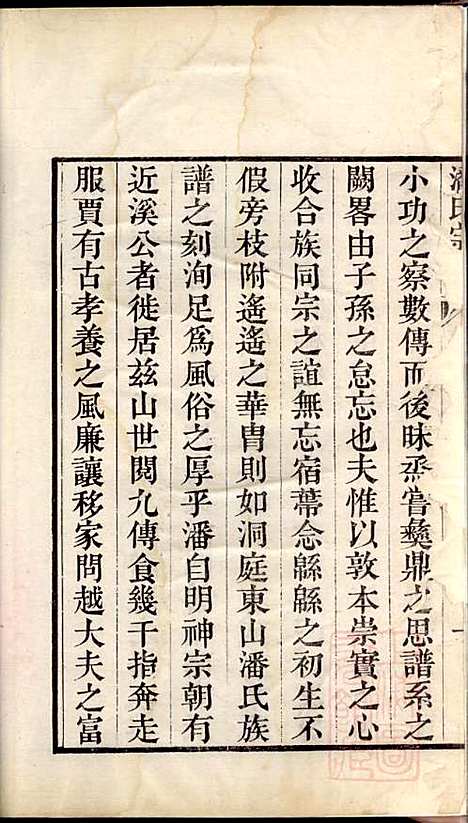 潘氏宗
小功之察數傳而後昧烝嘗彝鼎之思譜系之
闕畧由子孫之怠忘也夫惟以敦本崇實之心
收合族同宗之誼無忘宿莽念緜緜之初生不
假旁枝附遙遙之華冑則如洞庭東山潘氏族
譜之刻洵足爲風俗之厚乎潘自明神宗朝有
近溪公者徙居茲山世閱九傳食幾千指奔走
服賈有古孝養之風廉讓移家問越大夫之富